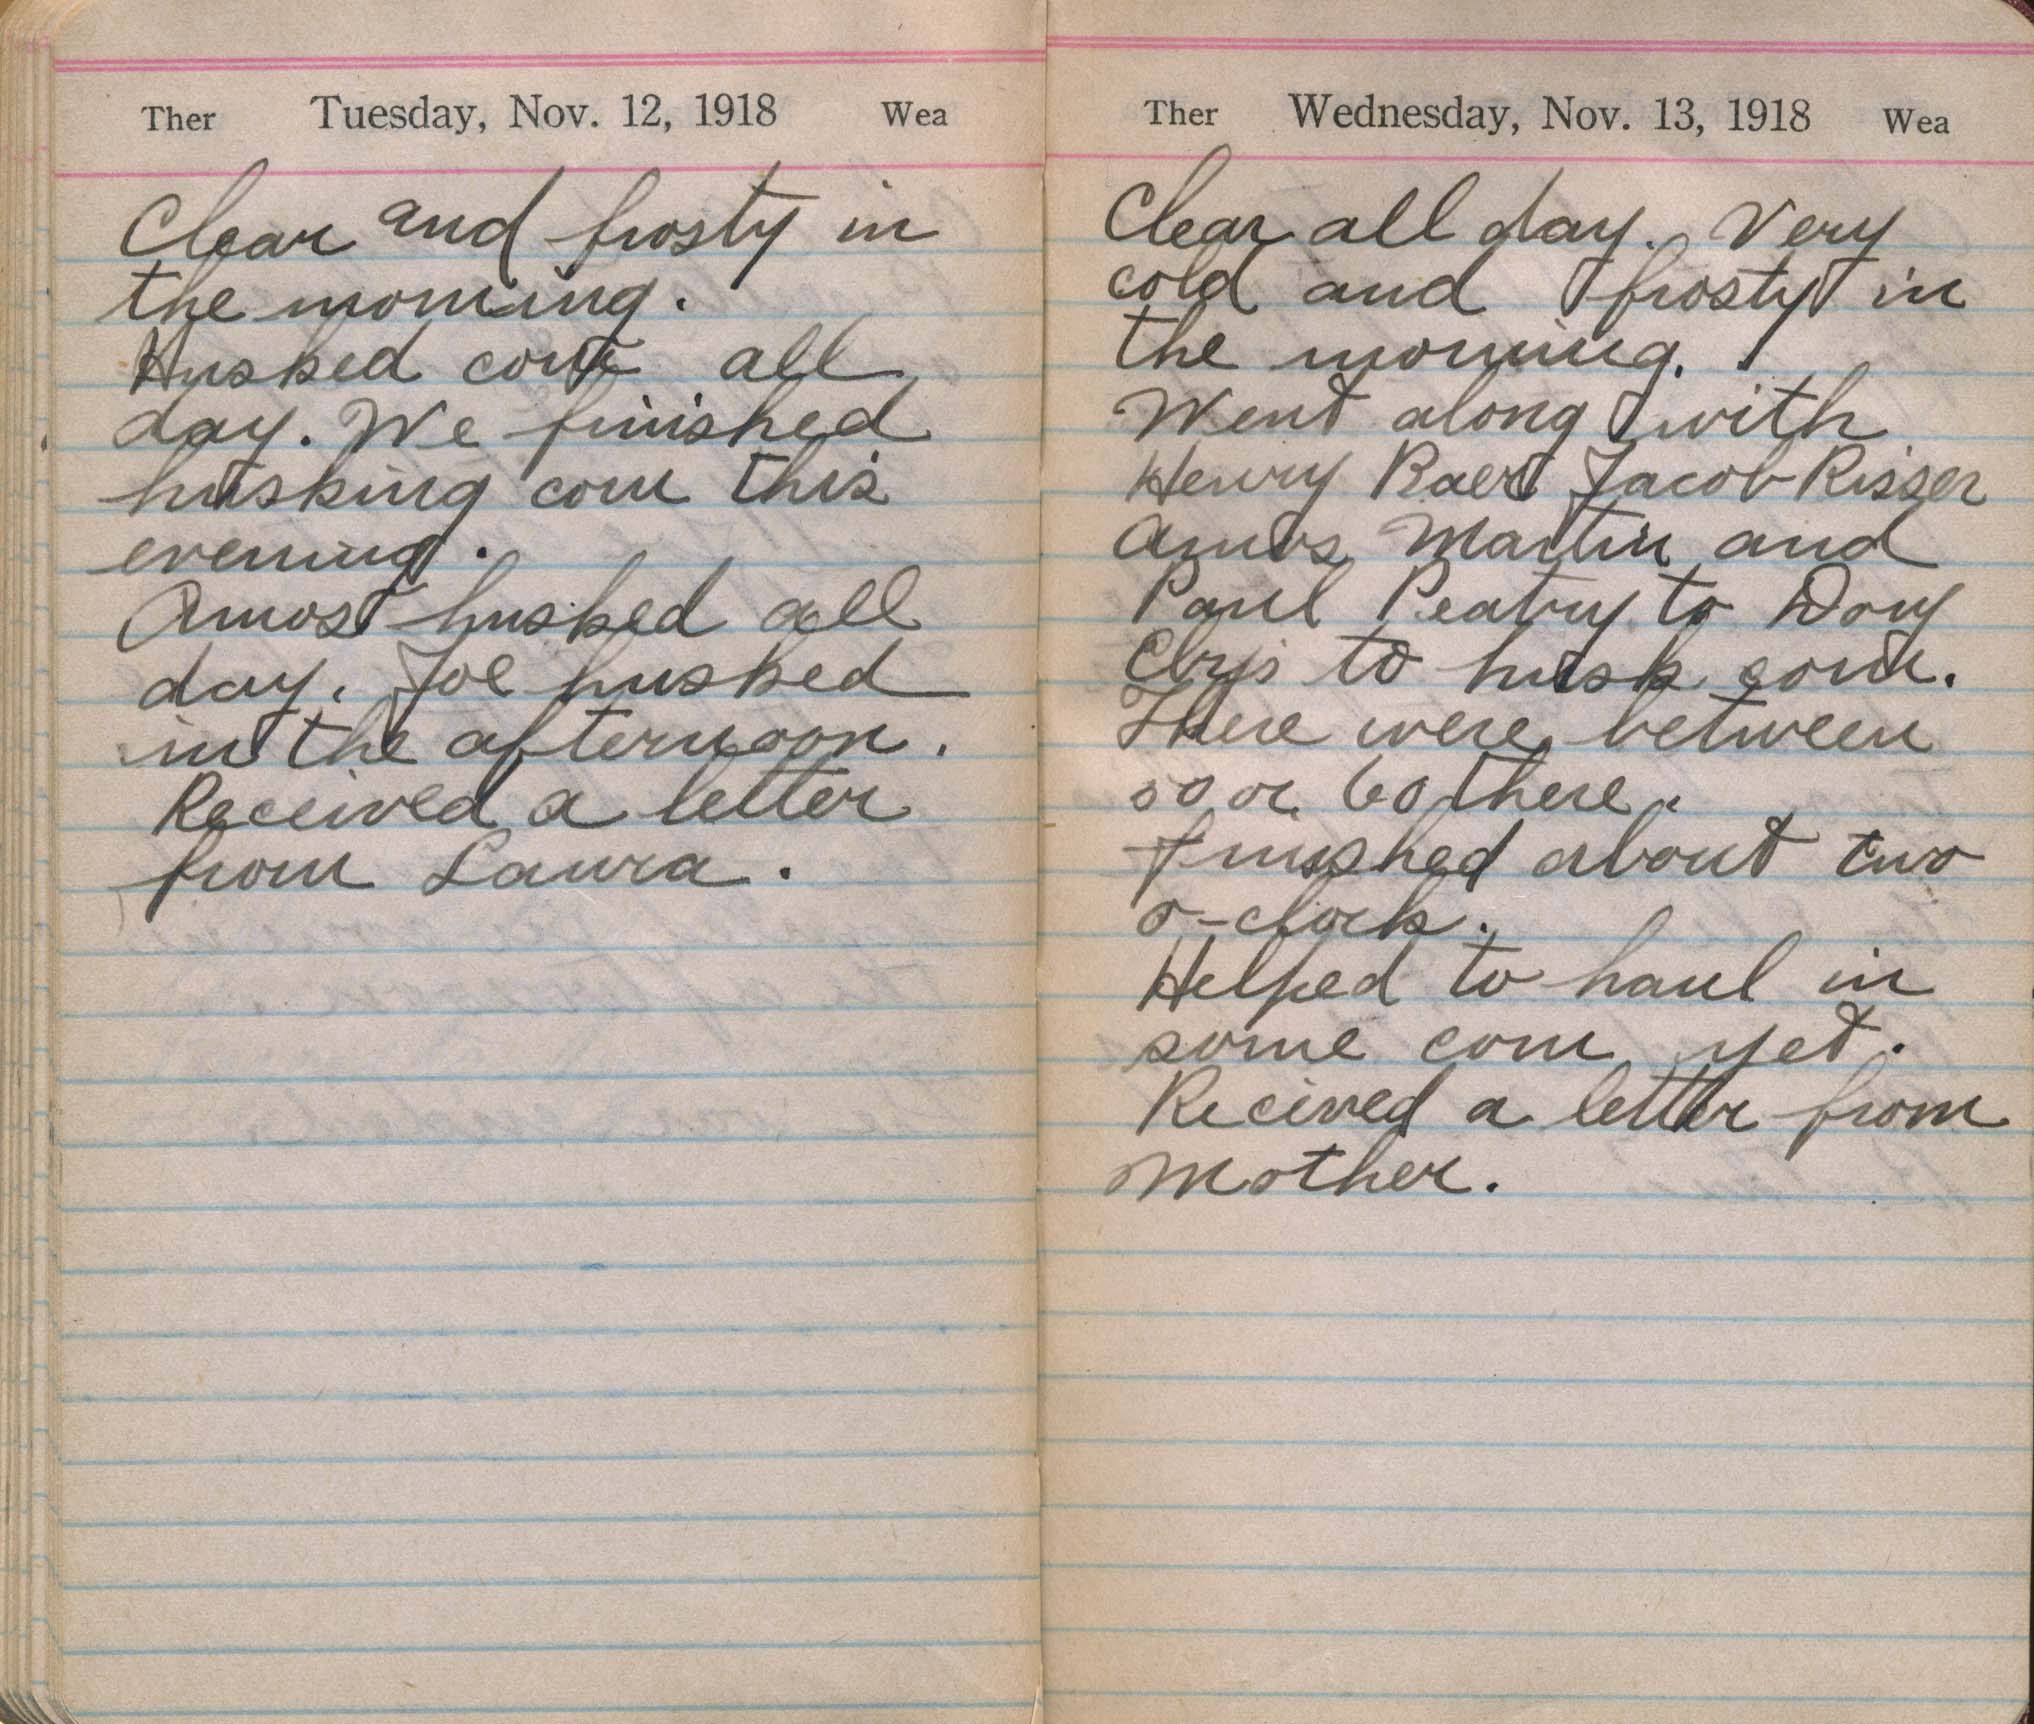 Ther Tuesday, Nov. 12, 1918 Wea
Clear and frosty in
the morning.
Husked corn all
day. We finished
husking corn this
evening.
Amos husked all
day. Joe husked
in the afternoon.
Received a letter
from Laura.
Ther Wednesday, Nov. 13, 1918 Wea
Clear all day. Very
cold and frosty in
the morning.
Went along with
Henry Baer Jacob Risser
Amos Martin and
Paul to
to husk corn.
There were between
50 or 60 there.
Finished about two
o-clock.
Helped to haul in
some corn yet.
Recived a letter from
Mother.